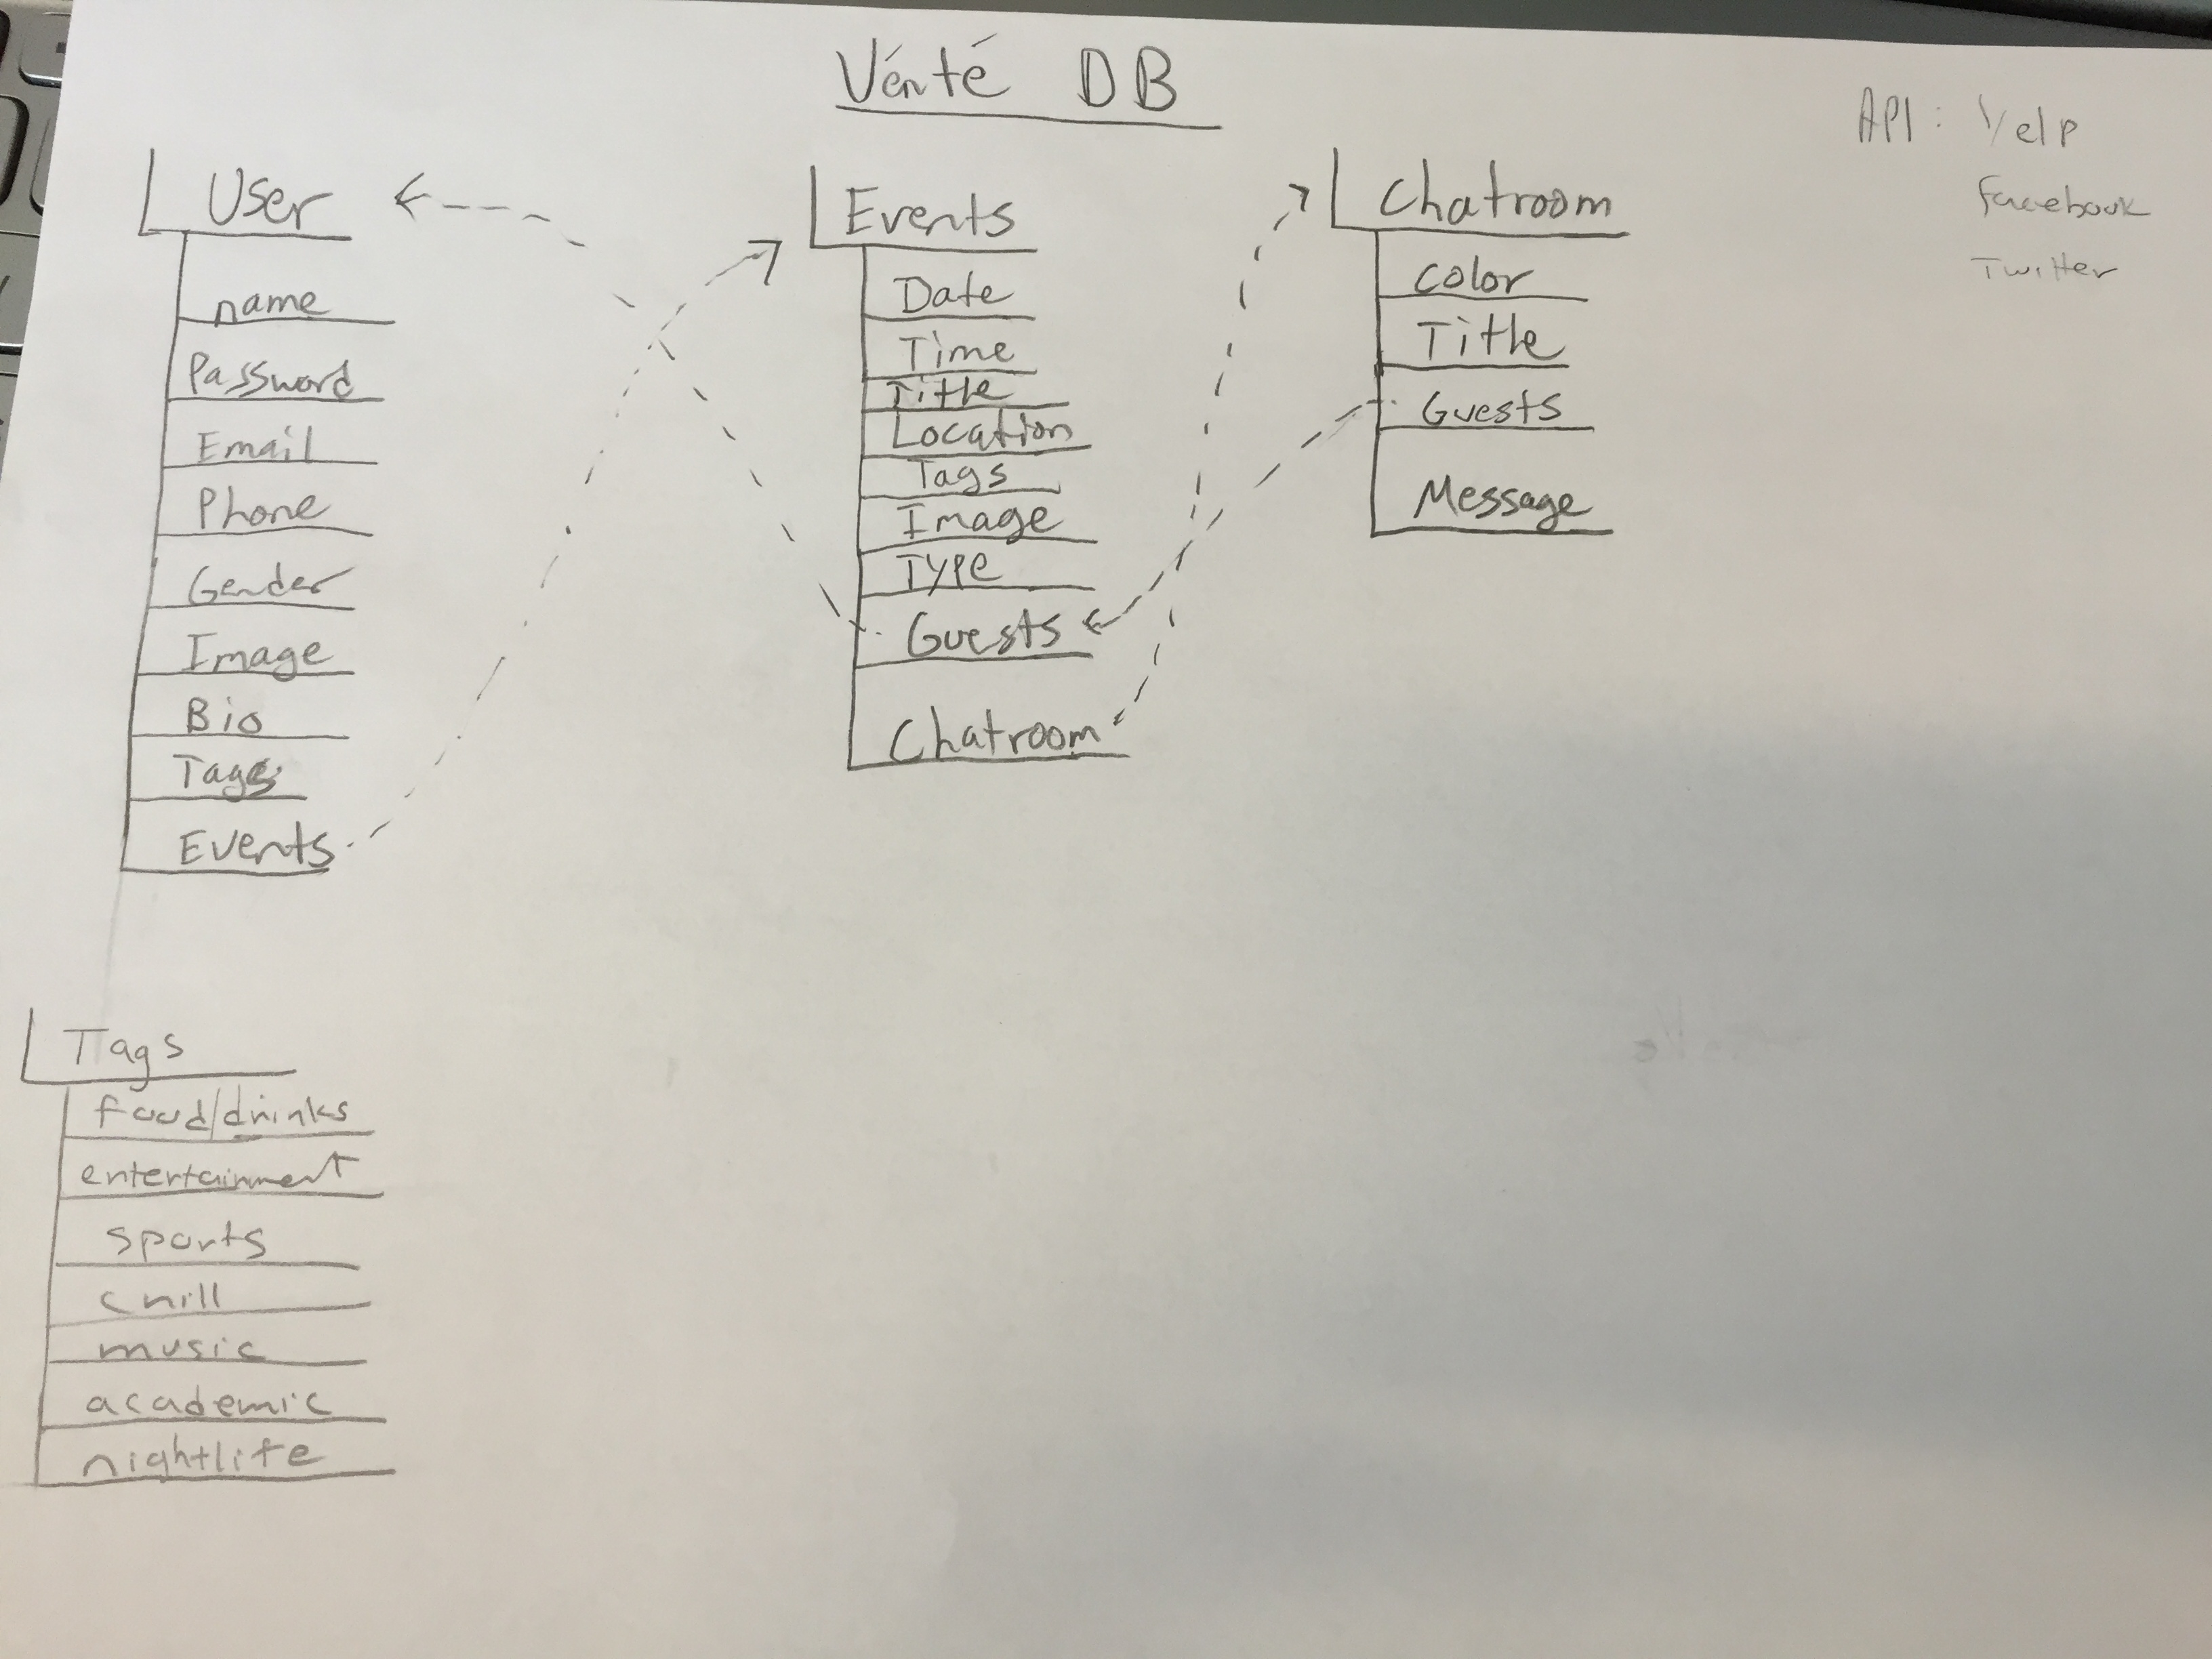 Vénté DB
API: Yelp
Facebook
Twitter
User
name
Password
Email
Phone
Gender
Image
Bio
Tags
Events
Events
Date
Time
Title
Location
Tags
Image
Type
Guests
Chatroom
Chatroom
Color
Title
Guests
Message
Tags
food/drinks
entertainment
sports
chill
music
academic
nightlife